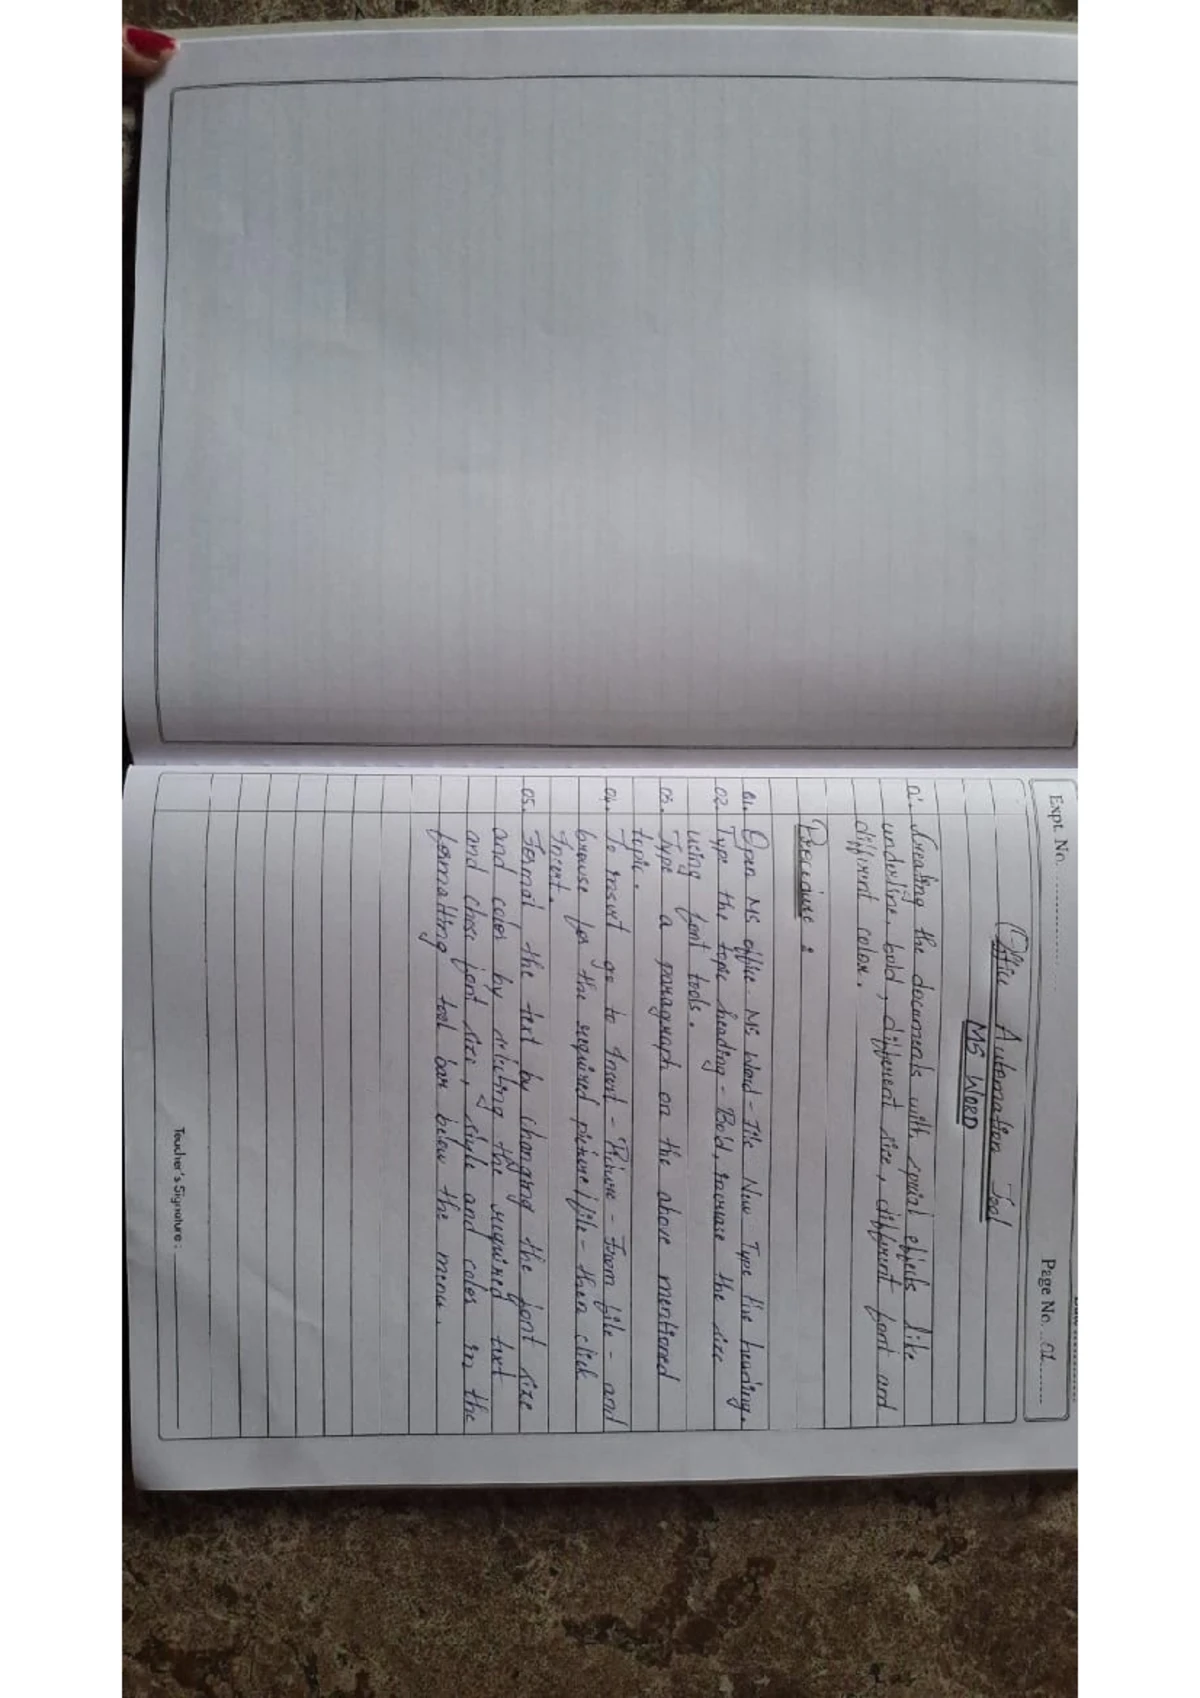 Expt. No. Page No. 01
Office Automation Tool
MS WORD
a. Creating the documents with special effects like
underline, bold, different size, different font and
different color.
Procedure :
01. Open MS office - MS Word - File New Type the heading.
02. Type the topic heading - Bold, increase the size
using font tools.
03. Type a paragraph on the above mentioned
topic.
04. To insert go to Insert - Picture - From file - and
browse for the required picture/file - then click
Insert.
05. Format the text by changing the font size
and color by selecting the required text
and chose font size, style and color in the
formatting tool bar below the menu.
Teacher's Signature :